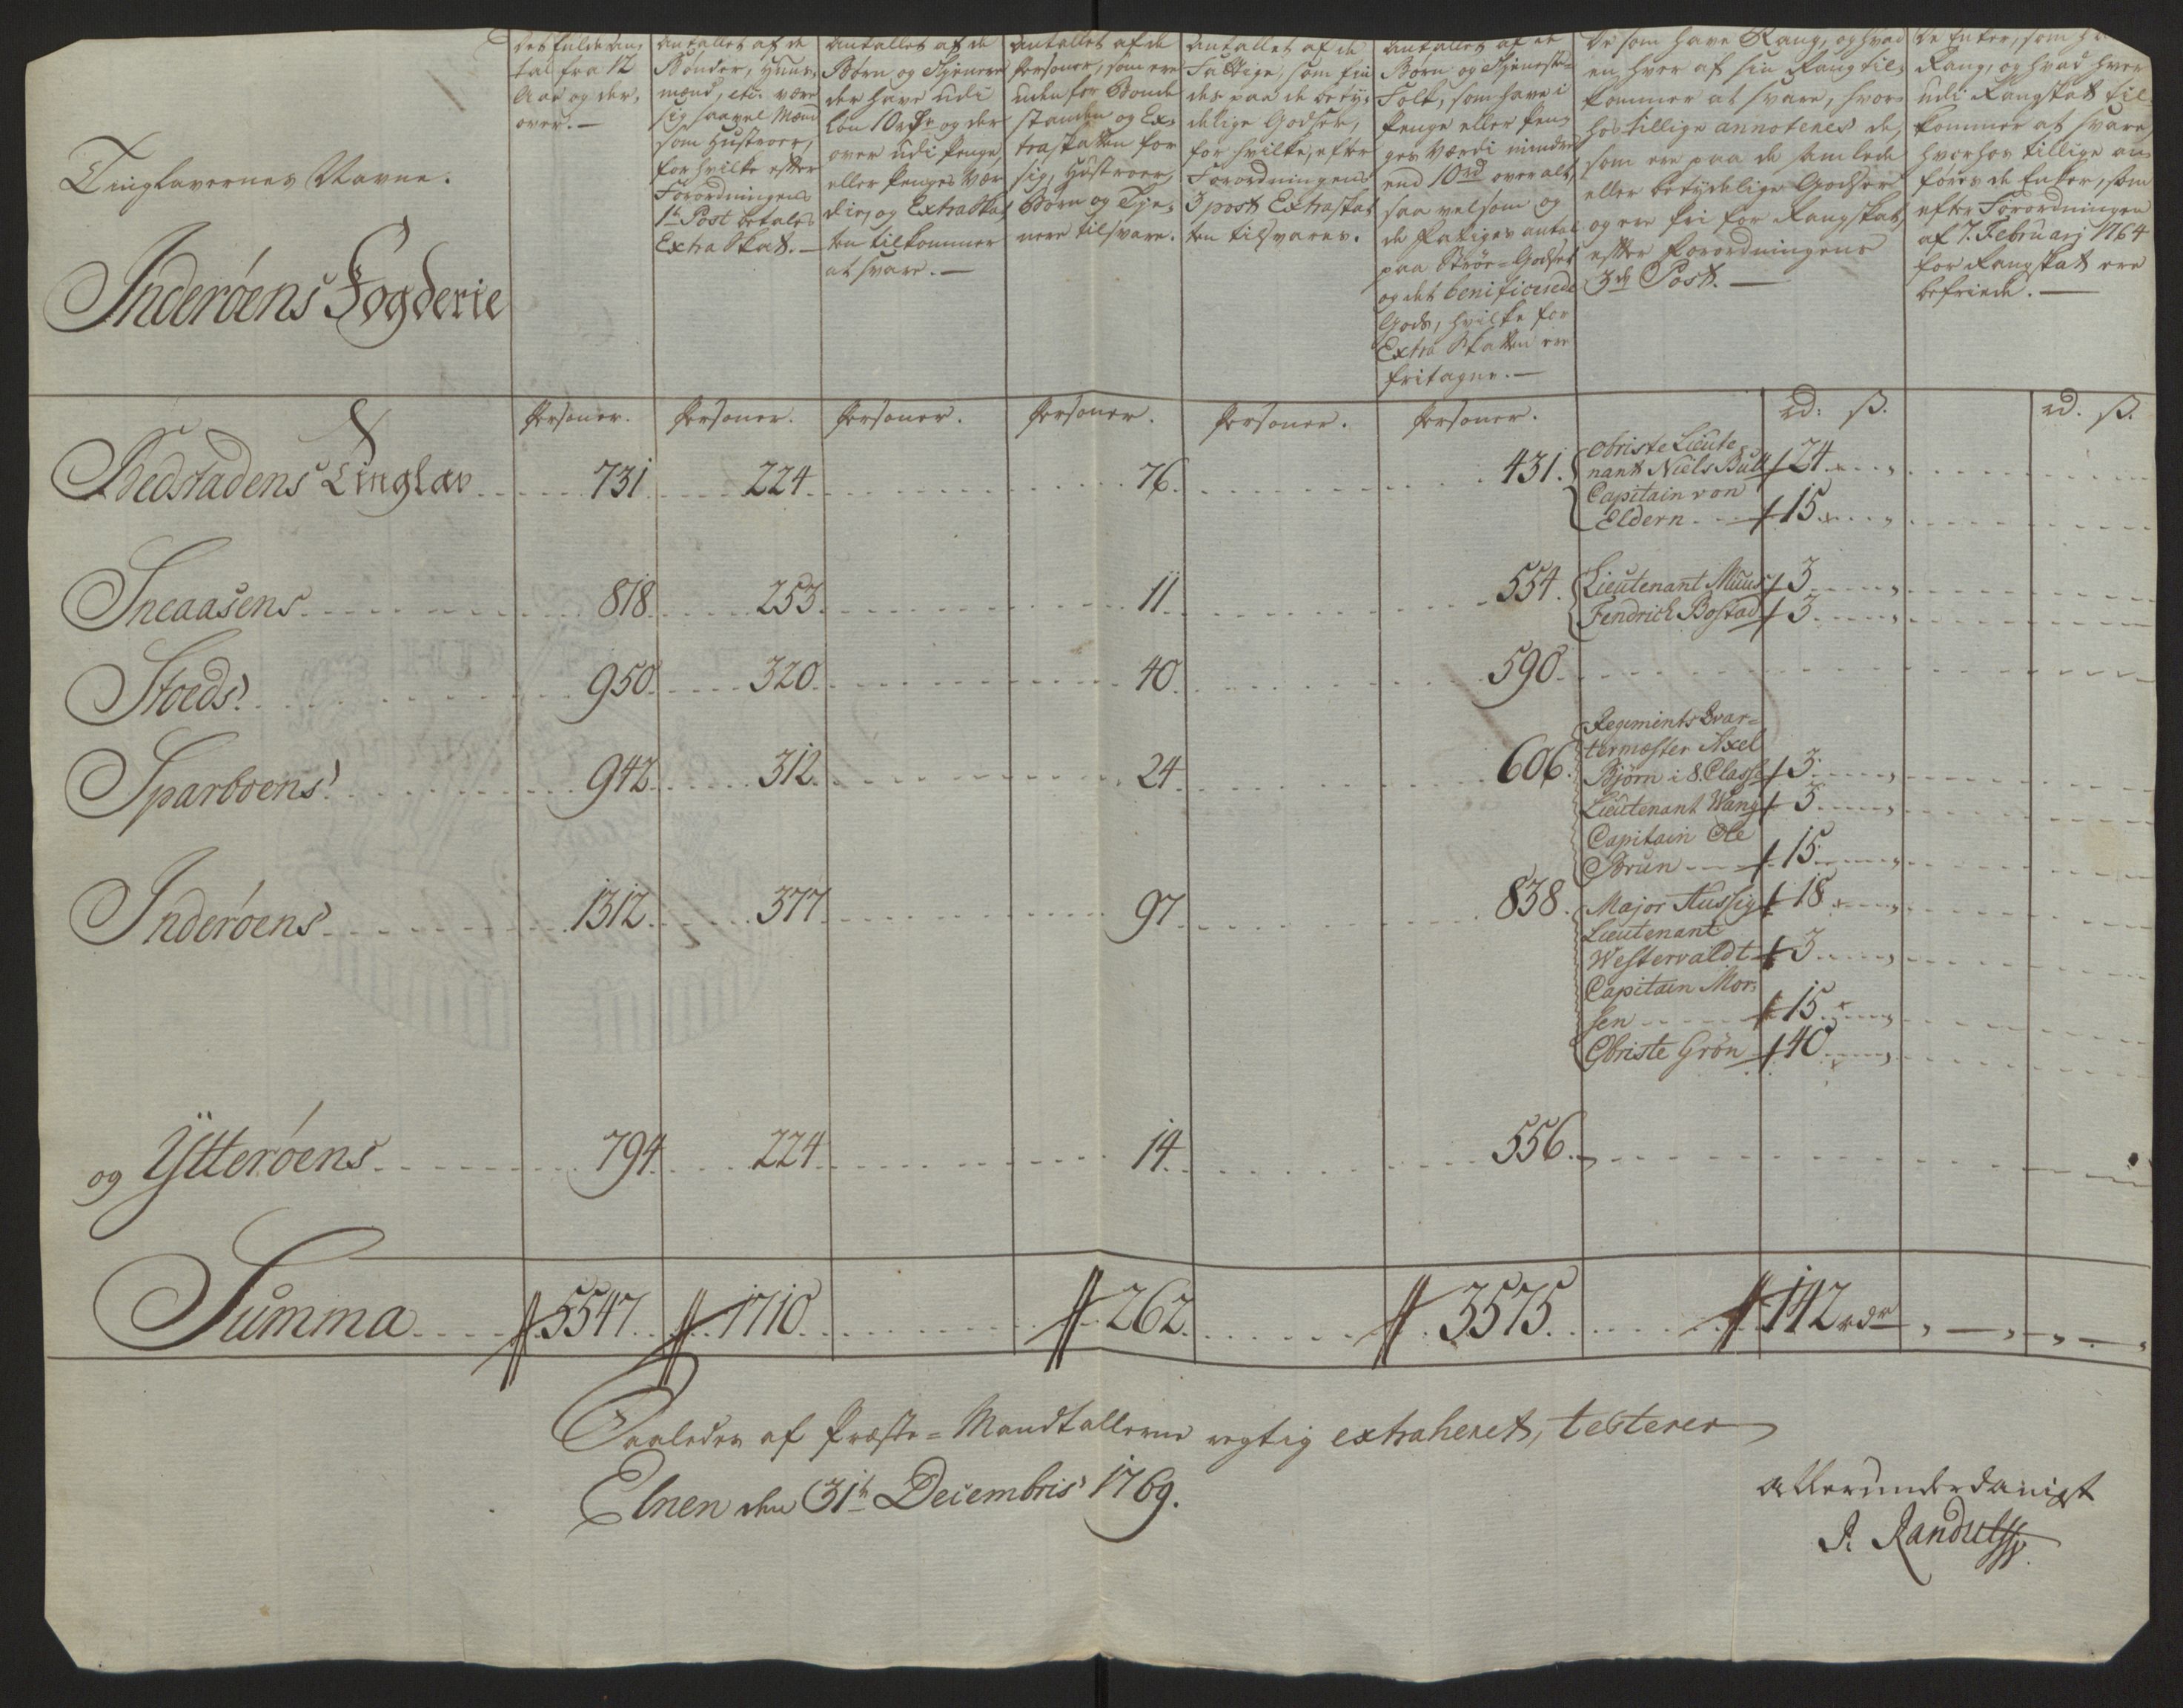 Tinglavernes Navne.
Inderöens Fogderie
Det fulde An-
tal fra 12
Aar og der-
over. —
Antallet af de
Bönder, Huus-
mænd, etc. være
sig saavel Mænd
som Hustroer,
for hvilke efter
Forordningens
1te Post betales
Extra Skat. —
Antallet af de
Börn og Tienere
der have udi
Lön 10 rdr og der
over udi Penge
eller Penges Vær
die, og Extra Skat
ten tilkommer
at svare. —
Antallet af de
Personer, som ere
uden for Bonde
standen og Ex-
traskatten for
sig, Hustroer,
Börn og Tie-
nere tilsvare.
Antallet af de
Fattige, som fin
des paa de betÿ-
delige Godser,
for hvilke, efter
Forordningens
3 post Extraskat
ten tilsvares.
Antallet af de
Börn og Tieneste-
Folk, som have i
Penge eller Pen-
ges Værdi mindre
end 10rd overalt,
saa velsom og
de Fattiges antal
paa Ströe-Godset
og det beneficerede
Gods, hvilke for
Extra Skatten ere
fritagne. —
De som have Rang, og hvad
en hver af sin Rang til-
kommer at svare, hvor-
hos tillige annoteres de,
som ere paa de samlede
eller betydelige Godser
og ere fri for Rangskat,
efter Forordningens
3de Post. —
De Enker, som
Rang, og hvad hver
udi Rangskat til-
kommer at svare,
hvorhos tillige an-
föres de Enker, som
efter Forordningen
af 7. Februarj 1764
for Rangskat ere
befriede. —
Personer. Personer. Personer. Personer. Personer. Personer. rd: ß. rd. ß.
Bedstadens Tinglav 731 224 76 431. Obriste Lieute
nant Niels Bull 24
Capitain von
Eldern 15
Sneaasens 818 253 11 554. Lieutenant Muus 3
Fendrich Bostad 3
Stoeds 950 320 40 590
Sparboens 942 312 24 606. Regiments Qvar-
termester Axel
Björn i 8. Classe 3
Lieutenant Wang 3
Capitain Ole
Brun 15
Inderöens 1312 377 97 838. Major Hussig 18
Lieutenant
Westervaldt 3
Capitain Mor-
sen 15
Obriste Grön 40
og Ÿtteröens 794 224 14 556
Summa 5547 1710 262 3575 142 rdr
Saaledes af Præste-Mandtallerne rigtig extraheret, testerer
Elnen den 31te Decembris 1769.
allerunderdanigst